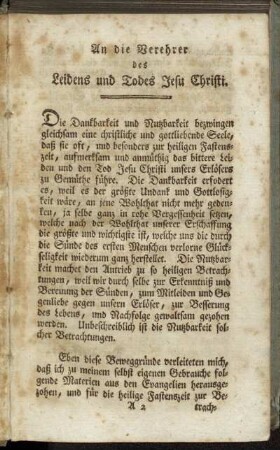 An die Verehrer
des
Leidens und Todes Jesu Christi.
Die Dankbarkeit und Nutzbarkeit bezwingen
gleichsam eine christliche und gottliebende Seele,
daß sie oft, und besonders zur heiligen Fastens-
zeit, aufmerksam und anmüthig das bittere Lei-
den und den Tod Jesu Christi unsers Erlösers
zu Gemüthe führe. Die Dankbarkeit erfodert
es, weil es der größte Undank und Gottlosig-
keit wäre, an jene Wohlthat nicht mehr geden-
ken, ja selbe ganz in rohe Vergessenheit setzen,
welche nach der Wohlthat unserer Erschaffung
die größte und wichtigste ist, welche uns die durch
die Sünde des ersten Menschen verlorne Glück-
seligkeit wiederum ganz herstellet. Die Nutzbar-
keit machet den Antrieb zu so heiligen Betrach-
tungen, weil wir durch selbe zur Erkenntniß und
Bereuung der Sünden, zum Mitleiden und Ge-
genliebe gegen unsern Erlöser, zur Besserung
des Lebens, und Nachfolge gewaltsam gezohen
werden. Unbeschreiblich ist die Nutzbarkeit sol-
cher Betrachtungen.
Eben diese Beweggründe verleiteten mich,
daß ich zu meinem selbst eigenen Gebrauche fol-
gende Materien aus den Evangelien herausge-
zohen, und für die heilige Fastenszeit zur Be-
A 2 trach-